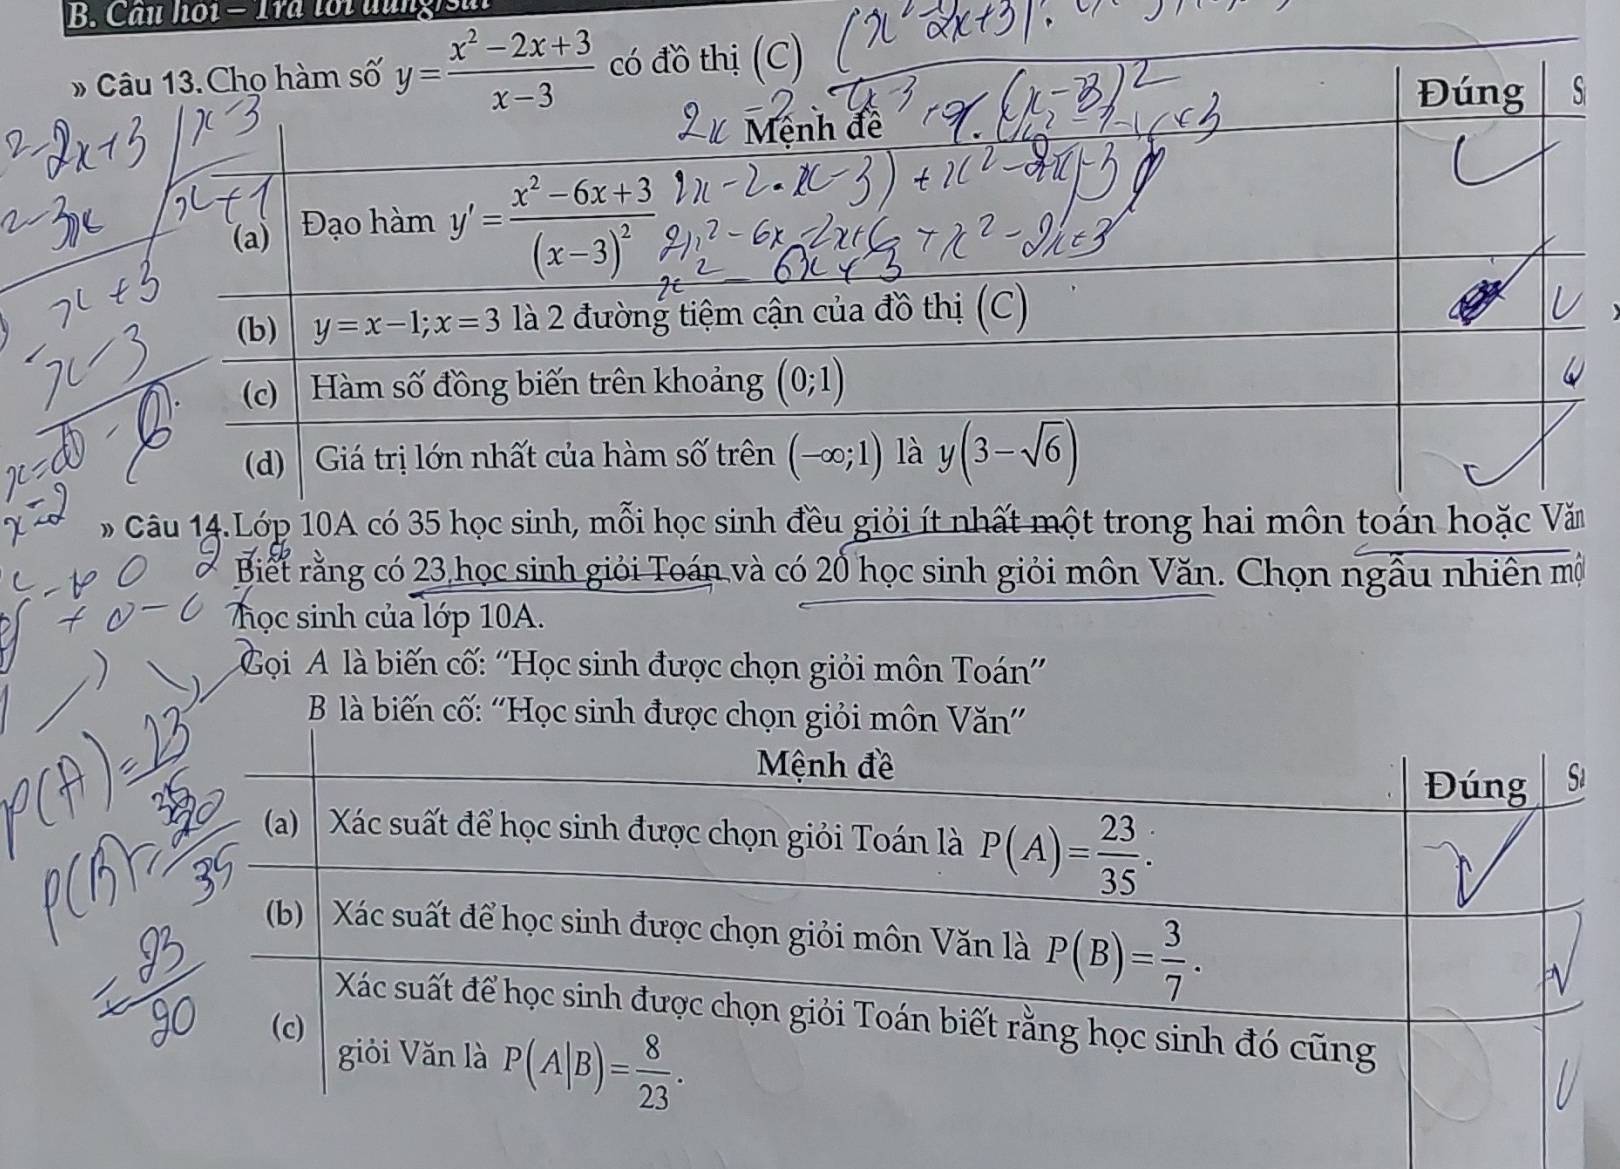 B. Câu hỏi – Trả lời đúng/sai
» Câu 13. Cho hàm số y = (x² - 2x + 3)/(x - 3) có đồ thị (C)
Mệnh đề Đúng S
(a) Đạo hàm y' = (x² - 6x + 3)/(x - 3)²
(b) y = x - 1; x = 3 là 2 đường tiệm cận của đồ thị (C)
(c) Hàm số đồng biến trên khoảng (0;1)
(d) Giá trị lớn nhất của hàm số trên (-∞;1) là y(3 - √6)
» Câu 14. Lớp 10A có 35 học sinh, mỗi học sinh đều giỏi ít nhất một trong hai môn toán hoặc Văn
Biết rằng có 23 học sinh giỏi Toán và có 20 học sinh giỏi môn Văn. Chọn ngẫu nhiên mộ
học sinh của lớp 10A.
Gọi A là biến cố: "Học sinh được chọn giỏi môn Toán"
B là biến cố: "Học sinh được chọn giỏi môn Văn"
Mệnh đề Đúng Sa
(a) Xác suất để học sinh được chọn giỏi Toán là P(A) = 23/35.
(b) Xác suất để học sinh được chọn giỏi môn Văn là P(B) = 3/7.
(c) Xác suất để học sinh được chọn giỏi Toán biết rằng học sinh đó cũng
giỏi Văn là P(A|B) = 8/23.
2-2x+3 | x-3
x+1
x+3
x-3
2x²-6x-2x+6+x²-2x+3
x²-6x+3
P(A) = 23/35
P(B) = 20/35
23/20